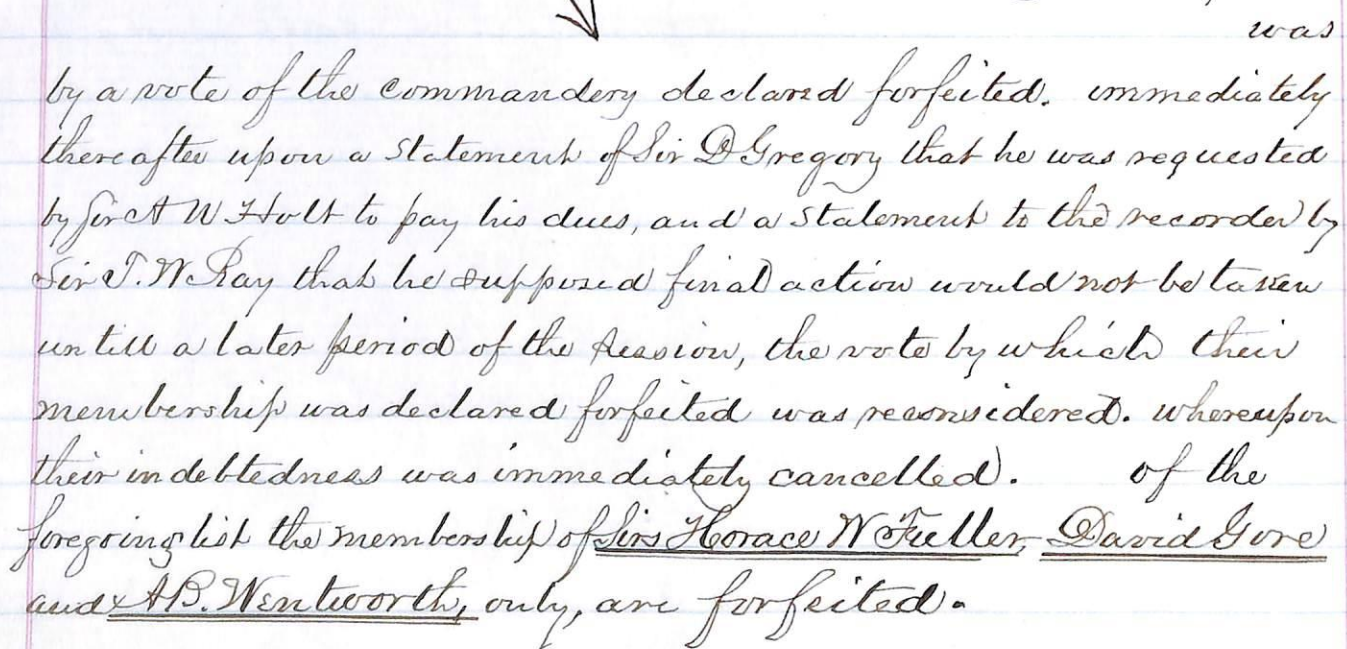 was
by a vote of the commandery declared forfeited. immediately
thereafter upon a statement of Sir D Gregory that he was requested
by Sir A W Holt to pay his dues, and a statement to the recorder by
Sir T. W Ray that he supposed final action would not be taken
untill a later period of the session, the vote by which their
membership was declared forfeited was reconsidered. whereupon
their indebtedness was immediately cancelled. of the
foregoing list the membership of Sirs Horace W Fuller, David Gore
and A B. Wentworth, only, are forfeited.